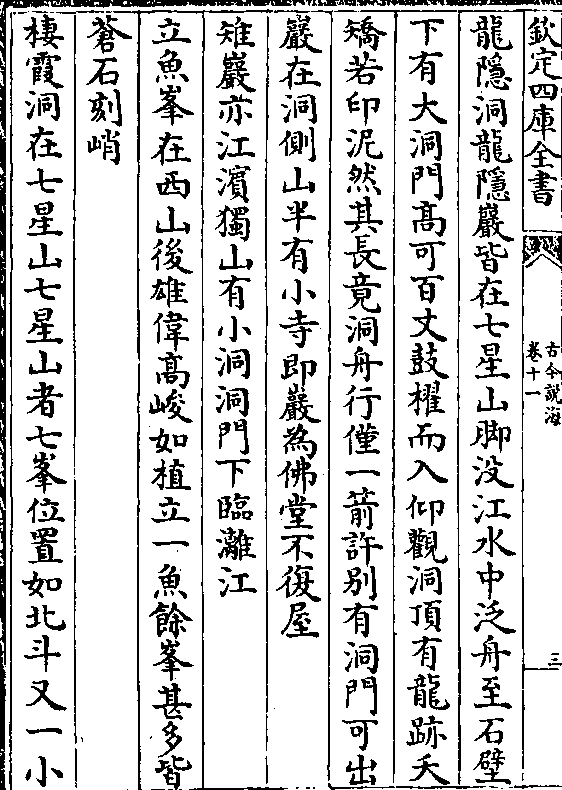 欽定四庫全書
古今說海
卷十一
三
龍隱洞龍隱巖皆在七星山脚没江水中泛舟至石壁
下有大洞門髙可百丈鼓櫂而入仰觀洞頂有龍跡夭
矯若印泥然其長竟洞舟行僅一箭許别有洞門可出
巖在洞側山半有小寺即巖為佛堂不復屋
雉巖亦江濵獨山有小洞洞門下臨灕江
立魚峯在西山後雄偉髙峻如植立一魚餘峯甚多皆
蒼石刻峭
棲霞洞在七星山七星山者七峯位置如北斗又一小